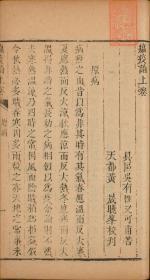 瘟疫論上卷
具區吳有性又可甫著
天都黃 晟曉峰校刊
原病
病疫之由昔日以為非其時有其氣春應溫而反大寒
夏應熱而反大涼秋應涼而反大熱冬應寒而反大
溫得非時之氣長幼之病相似以為疫余論則不然
夫寒熱溫涼乃四時之常因風雨陰晴稍為損益假
令秋熱必多晴春寒因多雨較之亦天地之常事未
瘟疫論上卷 原病